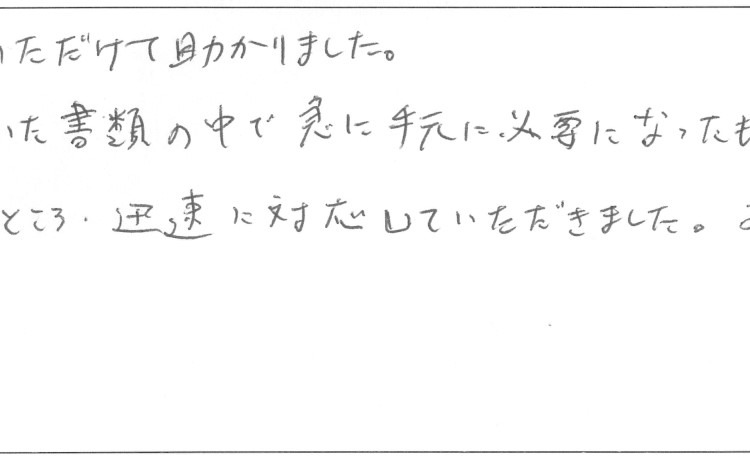 いただけて助かりました。
いた書類の中で急に手元に必要になったも
ところ、迅速に対応していただきました。